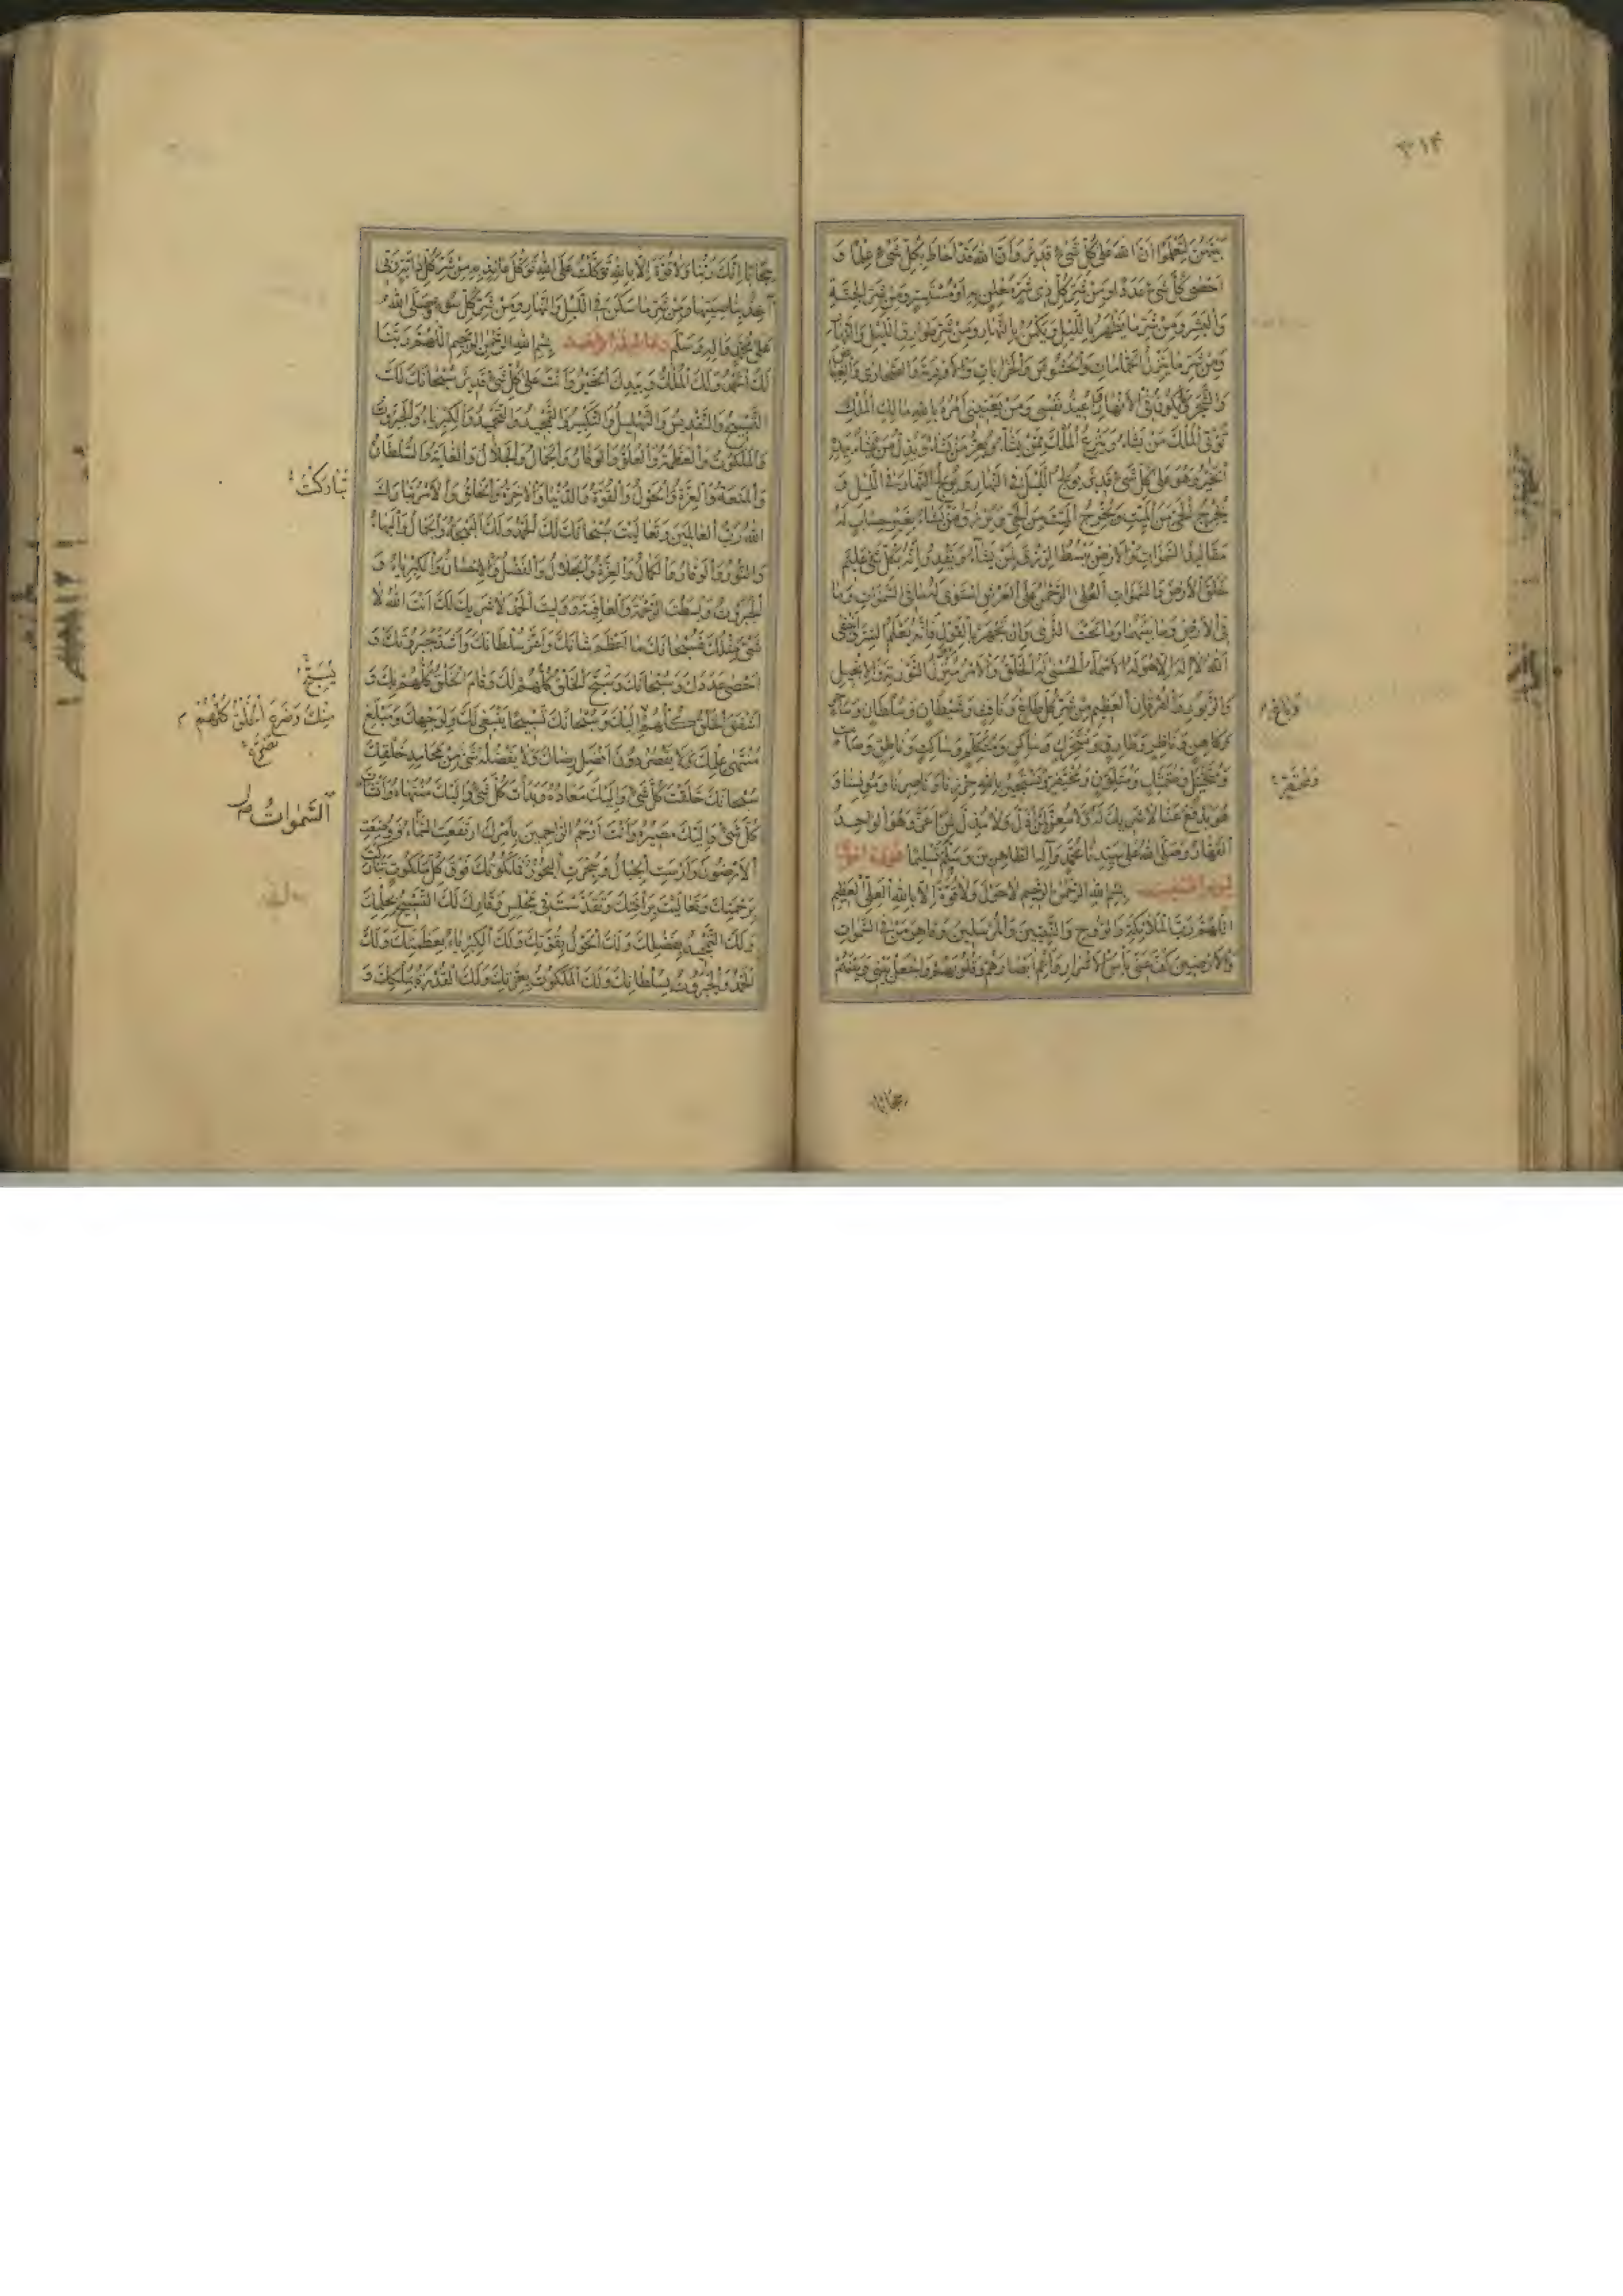 ٣١٤
بَيْنَهُنَّ لِتَعْلَمُوا أَنَّ اللهَ عَلى كُلِّ شَيْءٍ قَدِيرٌ وَأَنَّ اللهَ قَدْ أَحَاطَ بِكُلِّ شَيْءٍ عِلْمًا وَ
أَحْصى كُلَّ شَيْءٍ عَدَدًا وَمِنْ شَرِّ كُلِّ ذِي شَرٍّ مُعْلِنٍ بِهِ أَوْ مُسْتَتِرٍ وَمِنْ شَرِّ الْجِنَّةِ
وَالْبَشَرِ وَمِنْ شَرِّ مَا يَظْهَرُ بِاللَّيْلِ وَيَكْمُنُ بِالنَّهَارِ وَمِنْ شَرِّ طَوَارِقِ اللَّيْلِ وَالنَّهَارِ
وَمِنْ شَرِّ مَا يَنْزِلُ الْحَمَّامَاتِ وَالْحُشُوشَ وَالْخَرَابَاتِ وَالْأَوْدِيَةَ وَالصَّحَارِي وَالْغِيَاضَ
وَالشَّجَرَ وَيَكُونُ فِي الْأَنْهَارِ أُعِيذُ نَفْسِي وَمَنْ يَعْنِينِي أَمْرُهُ بِاللهِ مَالِكِ الْمُلْكِ
تُؤْتِي الْمُلْكَ مَنْ يَشَاءُ وَيَنْزِعُ الْمُلْكَ مِمَّنْ يَشَاءُ وَيُعِزُّ مَنْ يَشَاءُ وَيُذِلُّ مَنْ يَشَاءُ بِيَدِهِ
الْخَيْرُ وَهُوَ عَلى كُلِّ شَيْءٍ قَدِيرٌ يُولِجُ اللَّيْلَ فِي النَّهَارِ وَيُولِجُ النَّهَارَ فِي اللَّيْلِ وَ
يُخْرِجُ الْحَيَّ مِنَ الْمَيِّتِ وَيُخْرِجُ الْمَيِّتَ مِنَ الْحَيِّ وَيَرْزُقُ مَنْ يَشَاءُ بِغَيْرِ حِسَابٍ لَهُ
مَقَالِيدُ السَّمَوَاتِ وَالْأَرْضِ يَبْسُطُ الرِّزْقَ لِمَنْ يَشَاءُ وَيَقْدِرُ إِنَّهُ بِكُلِّ شَيْءٍ عَلِيمٌ
خَلَقَ الْأَرْضَ وَالسَّمَوَاتِ الْعُلى الرَّحْمنُ عَلَى الْعَرْشِ اسْتَوى لَهُ مَا فِي السَّمَوَاتِ وَمَا
فِي الْأَرْضِ وَمَا بَيْنَهُمَا وَمَا تَحْتَ الثَّرى وَإِنْ تَجْهَرْ بِالْقَوْلِ فَإِنَّهُ يَعْلَمُ السِّرَّ وَأَخْفى
اللهُ لَا إِلهَ إِلَّا هُوَ لَهُ الْأَسْمَاءُ الْحُسْنى لَهُ الْخَلْقُ وَالْأَمْرُ مُنْزِلُ التَّوْرَيةِ وَالْإِنْجِيلِ
وَالزَّبُورِ وَالْفُرْقَانِ الْعَظِيمِ مِنْ شَرِّ كُلِّ طَاغٍ وَنَافِثٍ وَشَيْطَانٍ وَسُلْطَانٍ وَسَاحِرٍ
وَبَاغٍ
وَكَاهِنٍ وَنَاظِرٍ وَطَارِقٍ وَمُتَحَرِّكٍ وَسَاكِنٍ وَمُتَكَلِّمٍ وَسَاكِتٍ وَنَاطِقٍ وَصَامِتٍ
وَمُتَخَيِّلٍ وَمُتَمَثِّلٍ وَمُتَلَوِّنٍ وَمُحْتَفِرٍ وَنَسْتَجِيرُ بِاللهِ حِرْزِنَا وَنَاصِرِنَا وَمُونِسِنَا وَ
هُوَ يَدْفَعُ عَنَّا لَا شَرِيكَ لَهُ وَلَا مُعِزَّ لِمَنْ أَذَلَّ وَلَا مُذِلَّ لِمَنْ أَعَزَّ وَهُوَ الْوَاحِدُ
الْقَهَّارُ وَصَلَّى اللهُ عَلى سَيِّدِنَا مُحَمَّدٍ وَآلِهِ الطَّاهِرِينَ وَسَلَّمَ تَسْلِيمًا
بِسْمِ اللهِ الرَّحْمنِ الرَّحِيمِ لَا حَوْلَ وَلَا قُوَّةَ إِلَّا بِاللهِ الْعَلِيِّ الْعَظِيمِ
اللَّهُمَّ رَبَّ الْمَلَائِكَةِ وَالرُّوحِ وَالنَّبِيِّينَ وَالْمُرْسَلِينَ وَقَاهِرَ مَنْ فِي السَّمَوَاتِ
وَالْأَرَضِينَ كُفَّ عَنِّي بَأْسَ الْأَشْرَارِ وَأَعْمِ أَبْصَارَهُمْ وَقُلُوبَهُمْ وَاجْعَلْ بَيْنِي وَبَيْنَهُمْ
حِجَابًا
حِجَابًا إِنَّكَ رَبُّنَا وَلَا قُوَّةَ إِلَّا بِاللهِ تَوَكَّلْتُ عَلَى اللهِ تَوَكُّلَ عَائِذٍ بِهِ مِنْ شَرِّ كُلِّ دَابَّةٍ رَبِّي
آخِذٌ بِنَاصِيَتِهَا وَمِنْ شَرِّ مَا سَكَنَ فِي اللَّيْلِ وَالنَّهَارِ وَمِنْ شَرِّ كُلِّ سُوءٍ وَصَلَّى اللهُ
عَلى مُحَمَّدٍ وَآلِهِ وَسَلَّمَ بِسْمِ اللهِ الرَّحْمنِ الرَّحِيمِ اللَّهُمَّ رَبَّنَا
لَكَ الْحَمْدُ وَلَكَ الْمُلْكُ وَبِيَدِكَ الْخَيْرُ وَأَنْتَ عَلى كُلِّ شَيْءٍ قَدِيرٌ سُبْحَانَكَ لَكَ
التَّسْبِيحُ وَالتَّقْدِيسُ وَالتَّهْلِيلُ وَالتَّكْبِيرُ وَالتَّمْجِيدُ وَالتَّحْمِيدُ وَالْكِبْرِيَاءُ وَالْجَبَرُوتُ
وَالْمَلَكُوتُ وَالْعَظَمَةُ وَالْعُلُوُّ وَالْوَقَارُ وَالْجَمَالُ وَالْجَلَالُ وَالْغَايَةُ وَالسُّلْطَانُ
وَالْمَنَعَةُ وَالْعِزَّةُ وَالْحَوْلُ وَالْقُوَّةُ وَالدُّنْيَا وَالْآخِرَةُ وَالْخَلْقُ وَالْأَمْرُ تَبَارَكْتَ
تَبَارَكْتَ
اللهُ رَبُّ الْعَالَمِينَ وَتَعَالَيْتَ سُبْحَانَكَ لَكَ الْحَمْدُ وَلَكَ الْبَهْجَةُ وَالْجَمَالُ وَالْبَهَاءُ
وَالنُّورُ وَالْوَقَارُ وَالْكَمَالُ وَالْعِزَّةُ وَالْجَلَالُ وَالْفَضْلُ وَالْإِحْسَانُ وَالْكِبْرِيَاءُ وَ
الْجَبَرُوتُ وَبَسَطْتَ الرَّحْمَةَ وَالْعَافِيَةَ وَوَلِيتَ الْحَمْدَ لَا شَرِيكَ لَكَ أَنْتَ اللهُ لَا
شَيْءَ مِثْلُكَ فَسُبْحَانَكَ مَا أَعْظَمَ شَأْنَكَ وَأَعَزَّ سُلْطَانَكَ وَأَشَدَّ جَبَرُوتَكَ وَ
أَحْصى عَدَدَكَ وَسُبْحَانَكَ وَسَبَّحَ الْخَلْقُ كُلُّهُمْ لَكَ وَقَامَ الْخَلْقُ كُلُّهُمْ بِكَ وَ
يُسَبِّحُ
أَشْفَقَ الْخَلْقُ كُلُّهُمْ إِلَيْكَ وَسُبْحَانَكَ تَسْبِيحًا يَنْبَغِي لَكَ وَلِوَجْهِكَ وَيَبْلُغُ
مِنْكَ وَضَرَعَ الْخَلْقُ كُلُّهُمْ
مُنْتَهى عِلْمِكَ وَلَا يَقْصُرُ دُونَ أَفْضَلِ رِضَاكَ وَلَا يَفْضُلُهُ شَيْءٌ مِنْ مَحَامِدِ خَلْقِكَ
سُبْحَانَكَ خَلَقْتَ كُلَّ شَيْءٍ وَإِلَيْكَ مَعَادُهُ وَبَدَأْتَ كُلَّ شَيْءٍ وَإِلَيْكَ مُنْتَهَاهُ وَأَنْشَأْتَ
السَّمَوَاتُ
كُلَّ شَيْءٍ وَإِلَيْكَ مَصِيرُهُ وَأَنْتَ أَرْحَمُ الرَّاحِمِينَ بِأَمْرِكَ ارْتَفَعَتِ السَّمَاءُ وَوُضِعَتِ
الْأَرَضُونَ وَأُرْسِيَتِ الْجِبَالُ وَسُجِّرَتِ الْبُحُورُ فَمَلَكُوتُكَ فَوْقَ كُلِّ مَلَكُوتٍ تَبَارَكْتَ
بِرَحْمَتِكَ وَتَعَالَيْتَ بِرَأْفَتِكَ وَتَقَدَّسْتَ فِي مَجْلِسِ وَقَارِكَ لَكَ التَّسْبِيحُ بِحِلْمِكَ
وَلَكَ التَّمْجِيدُ بِفَضْلِكَ وَلَكَ الْحَوْلُ بِقُوَّتِكَ وَلَكَ الْكِبْرِيَاءُ بِعَظَمَتِكَ وَلَكَ
الْحَمْدُ وَالْجَبَرُوتُ بِسُلْطَانِكَ وَلَكَ الْمَلَكُوتُ بِعِزَّتِكَ وَلَكَ الْقُدْرَةُ بِمُلْكِكَ وَ